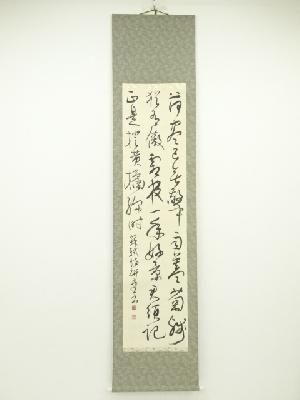 荷盡已無擎雨蓋菊殘
猶有傲霜枝一年好景君須記
正是橙黃橘綠時 蘇軾詩